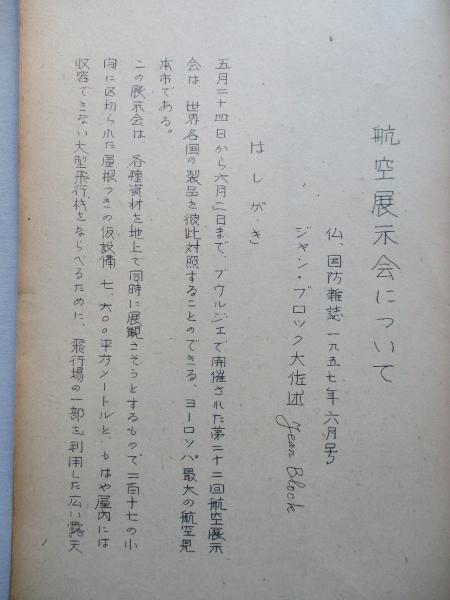 航空展示会について
仏、国防雑誌一九五七年六月号
ジャン・ブロック大佐述 Jean Block
はしがき
五月二十四日から六月二日まで、ブウルジェで開催された第二十二回航空展示
会は、世界各国の製品を彼此対照することのできる、ヨーロッパ最大の航空見
本市である。
この展示会は、各種資材を地上で同時に展観させようとするもので、二百十七の小
間に区切られた屋根つきの仮設備七、六〇〇平方メートルと、もはや屋内には
収容できない大型飛行機をならべるために、飛行場の一部を利用した広い露天